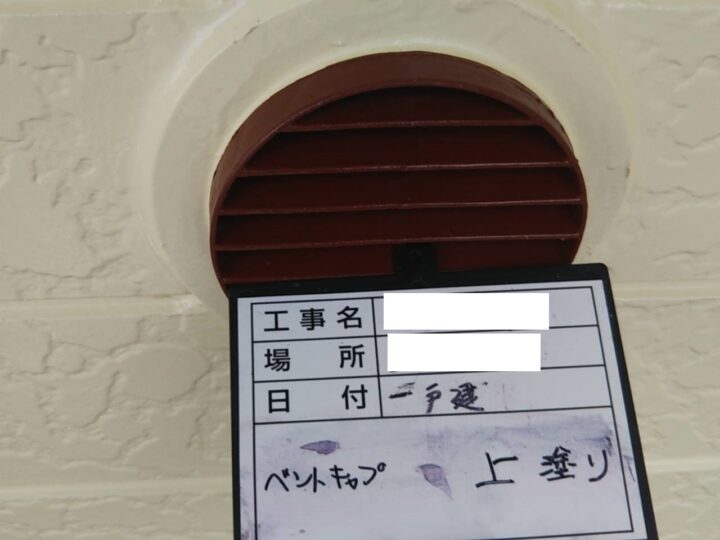 工事名
場所
日付 一戸建
ベントキャプ 上塗り